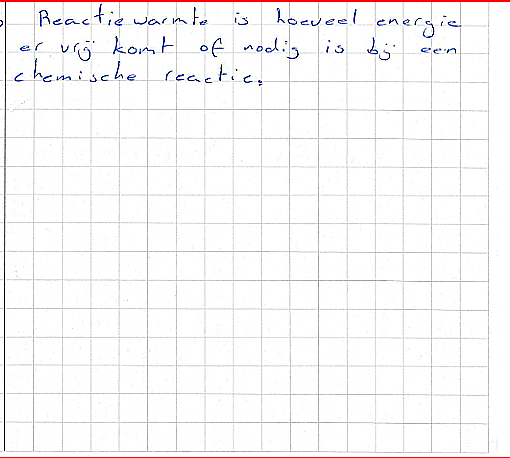 Reactie warmte is hoeveel energie
er vrij komt of nodig is bij een
chemische reactie.